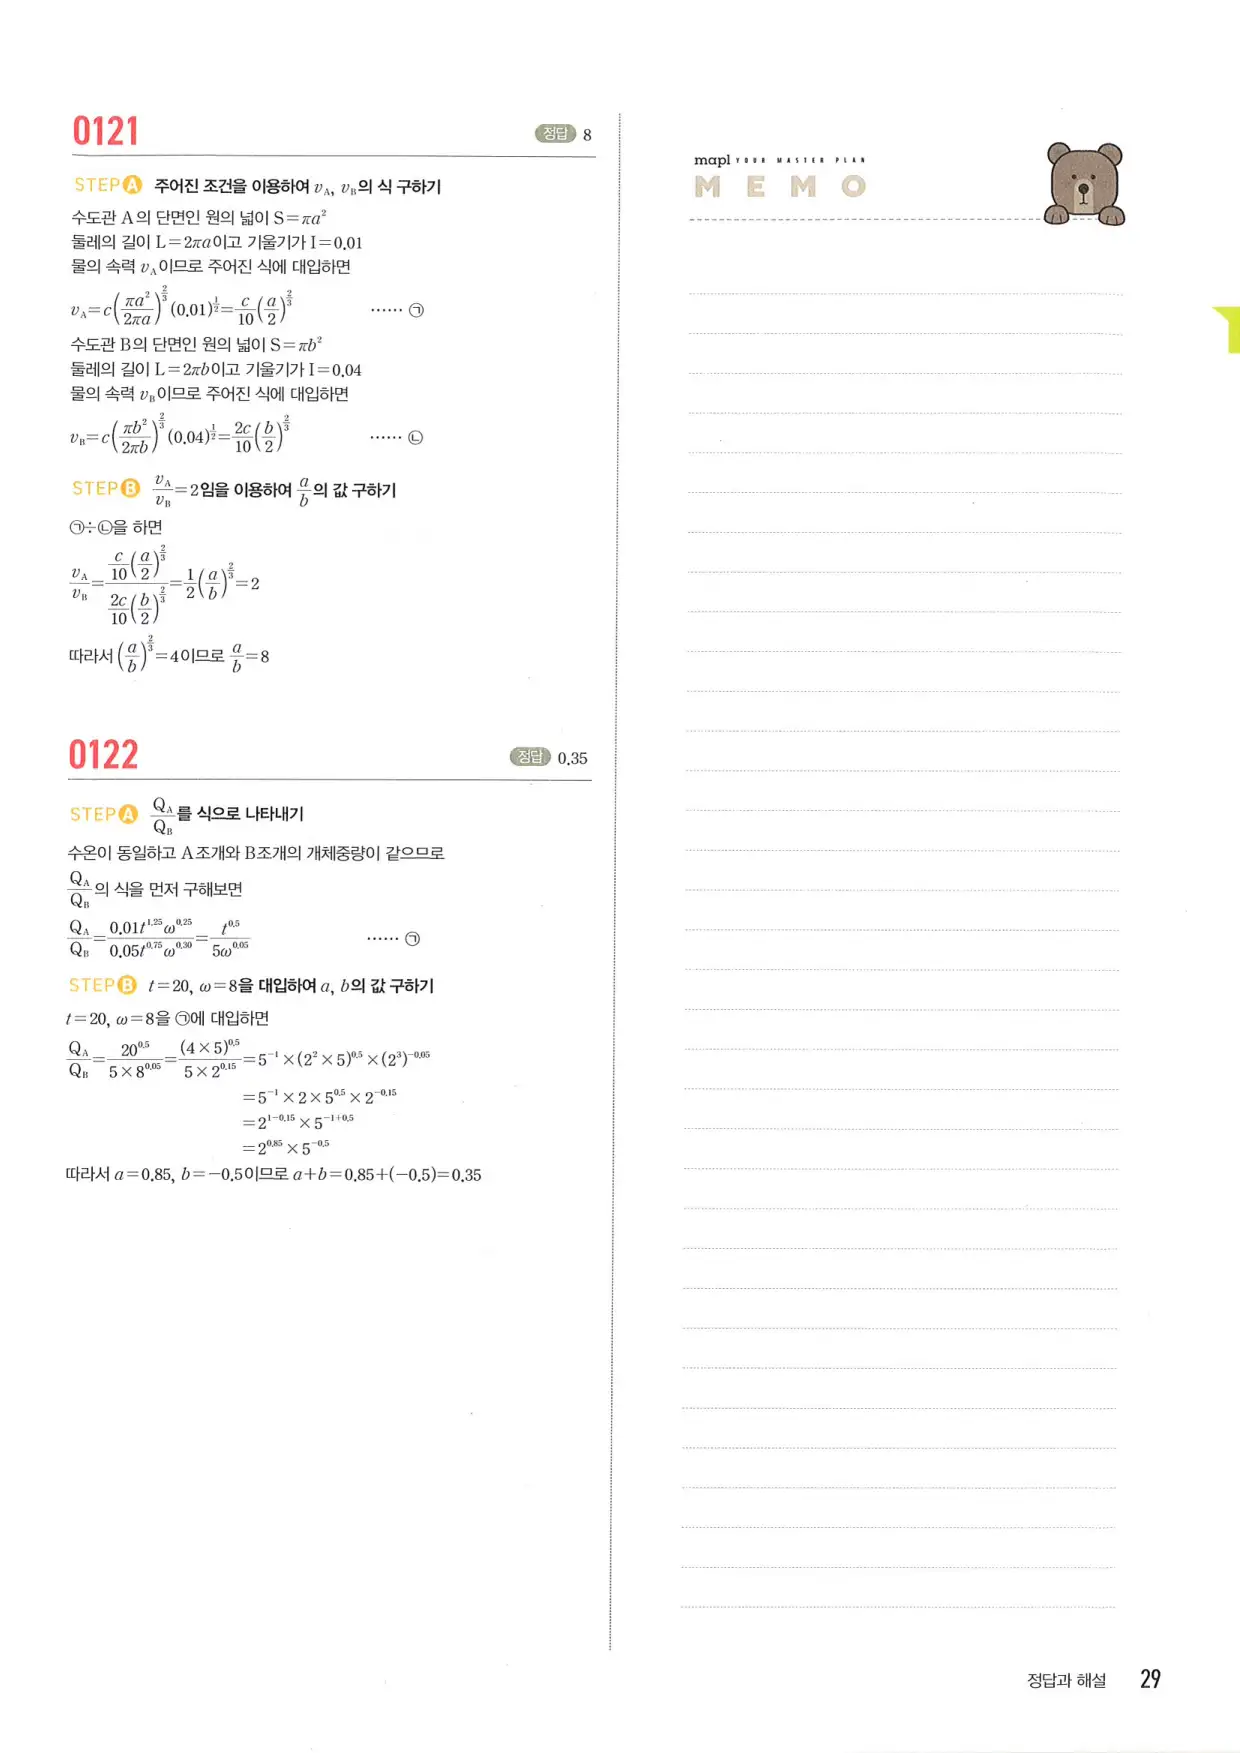 0121
정답 8
STEP A 주어진 조건을 이용하여 v_A, v_B의 식 구하기
수도관 A의 단면인 원의 넓이 S=πa²
둘레의 길이 L=2πa이고 기울기가 I=0.01
물의 속력 v_A이므로 주어진 식에 대입하면
v_A=c(πa²/2πa)^(2/3)(0.01)^(1/2)=c/10(a/2)^(2/3) ······ ㉠
수도관 B의 단면인 원의 넓이 S=πb²
둘레의 길이 L=2πb이고 기울기가 I=0.04
물의 속력 v_B이므로 주어진 식에 대입하면
v_B=c(πb²/2πb)^(2/3)(0.04)^(1/2)=2c/10(b/2)^(2/3) ······ ㉡
STEP B v_A/v_B=2임을 이용하여 a/b의 값 구하기
㉠÷㉡을 하면
v_A/v_B=(c/10(a/2)^(2/3))/(2c/10(b/2)^(2/3))=1/2(a/b)^(2/3)=2
따라서 (a/b)^(2/3)=4이므로 a/b=8
0122
정답 0.35
STEP A Q_A/Q_B를 식으로 나타내기
수온이 동일하고 A조개와 B조개의 개체중량이 같으므로
Q_A/Q_B의 식을 먼저 구해보면
Q_A/Q_B=0.01t^1.25 ω^0.25/0.05t^0.75 ω^0.30=t^0.5/5ω^0.05 ······ ㉠
STEP B t=20, ω=8을 대입하여 a, b의 값 구하기
t=20, ω=8을 ㉠에 대입하면
Q_A/Q_B=20^0.5/(5×8^0.05)=(4×5)^0.5/(5×2^0.15)=5^-1×(2²×5)^0.5×(2³)^-0.05
=5^-1×2×5^0.5×2^-0.15
=2^(1-0.15)×5^(-1+0.5)
=2^0.85×5^-0.5
따라서 a=0.85, b=-0.5이므로 a+b=0.85+(-0.5)=0.35
mapl YOUR MASTER PLAN
MEMO
정답과 해설 29